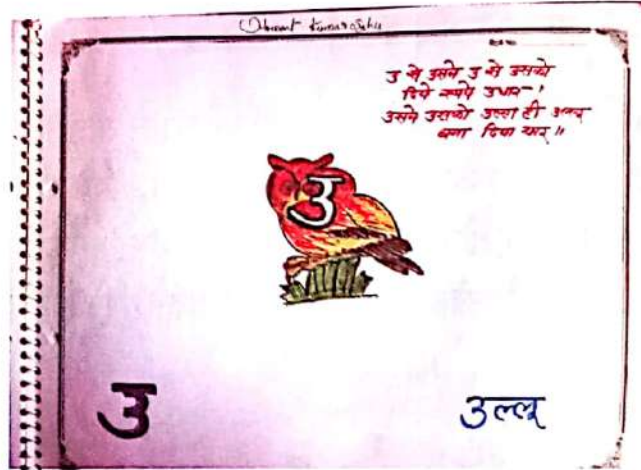 Kumar Sahu
उ से उसने उ से उसको
दिये रुपये उधार ।
उसने उसको उल्टा ही उल्लू
बना दिया यार ॥
उ
उ
उल्लू